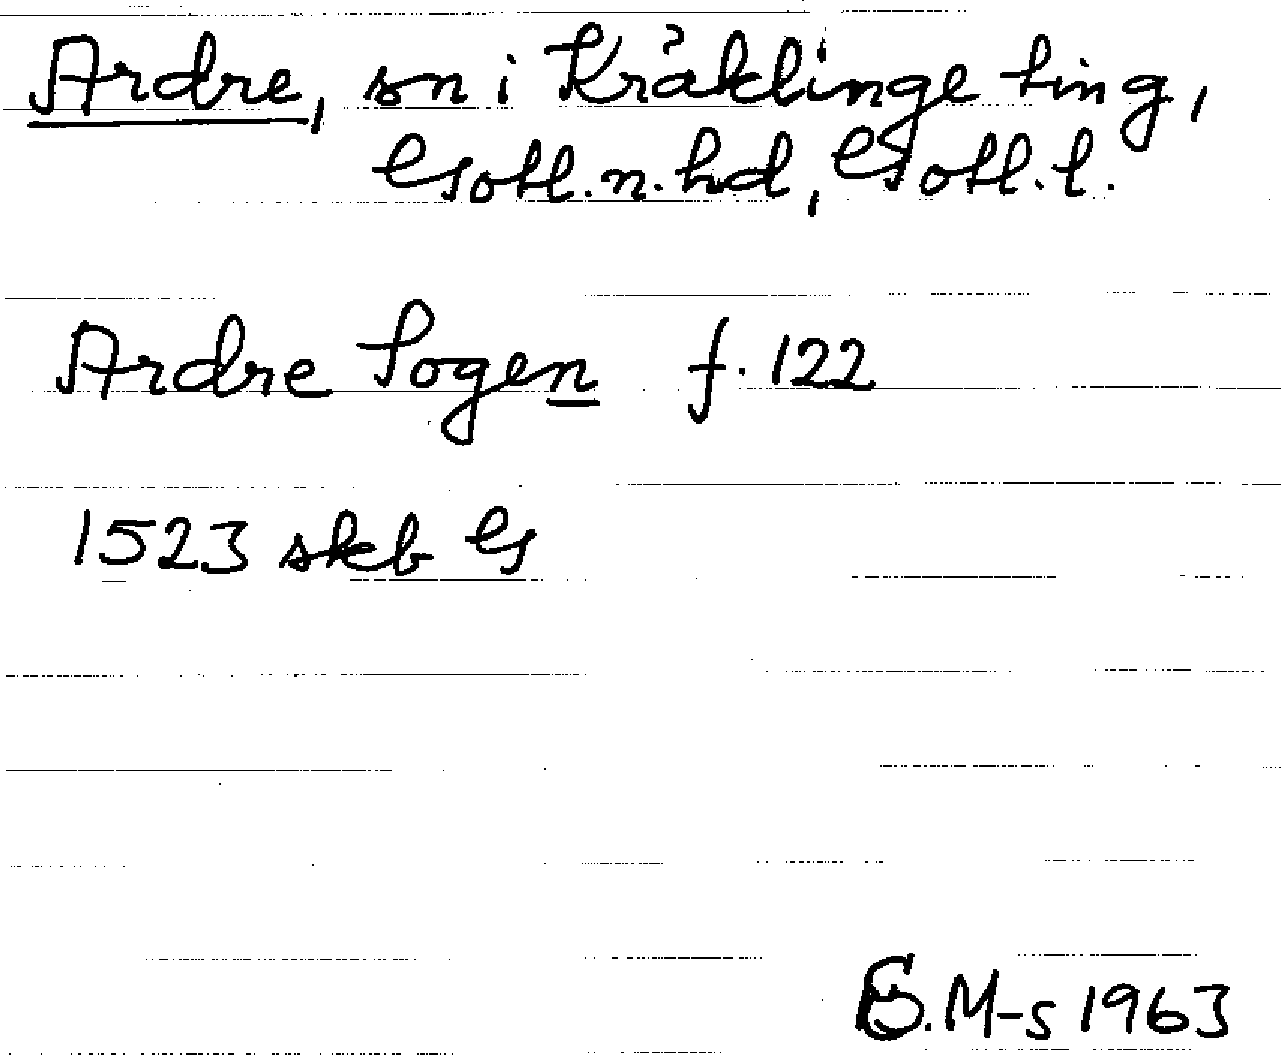 Ardre, sn i Kräklinge ting,
Gotl. n. hd, Gotl. l.
Ardre Sogen f. 122
1523 skb G
G.M-s 1963